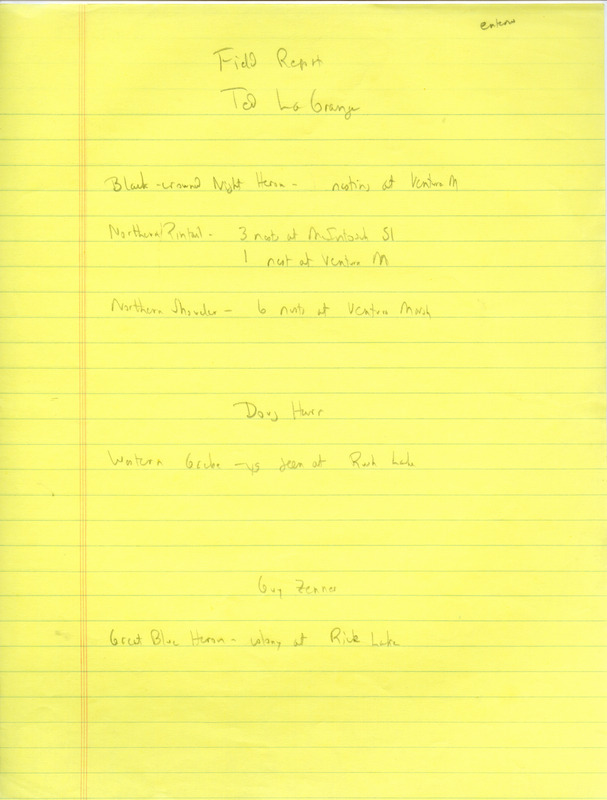 enter
Field Report
Ted LaGrange
Black-crowned Night Heron - nesting at Ventura M
Northern Pintail - 3 nests at McIntosh Sl
1 nest at Ventura M
Northern Shoveler - 6 nests at Ventura Marsh
Doug Harr
Western Grebe - ys seen at Rush Lake
Guy Zenner
Great Blue Heron - colony at Rice Lake